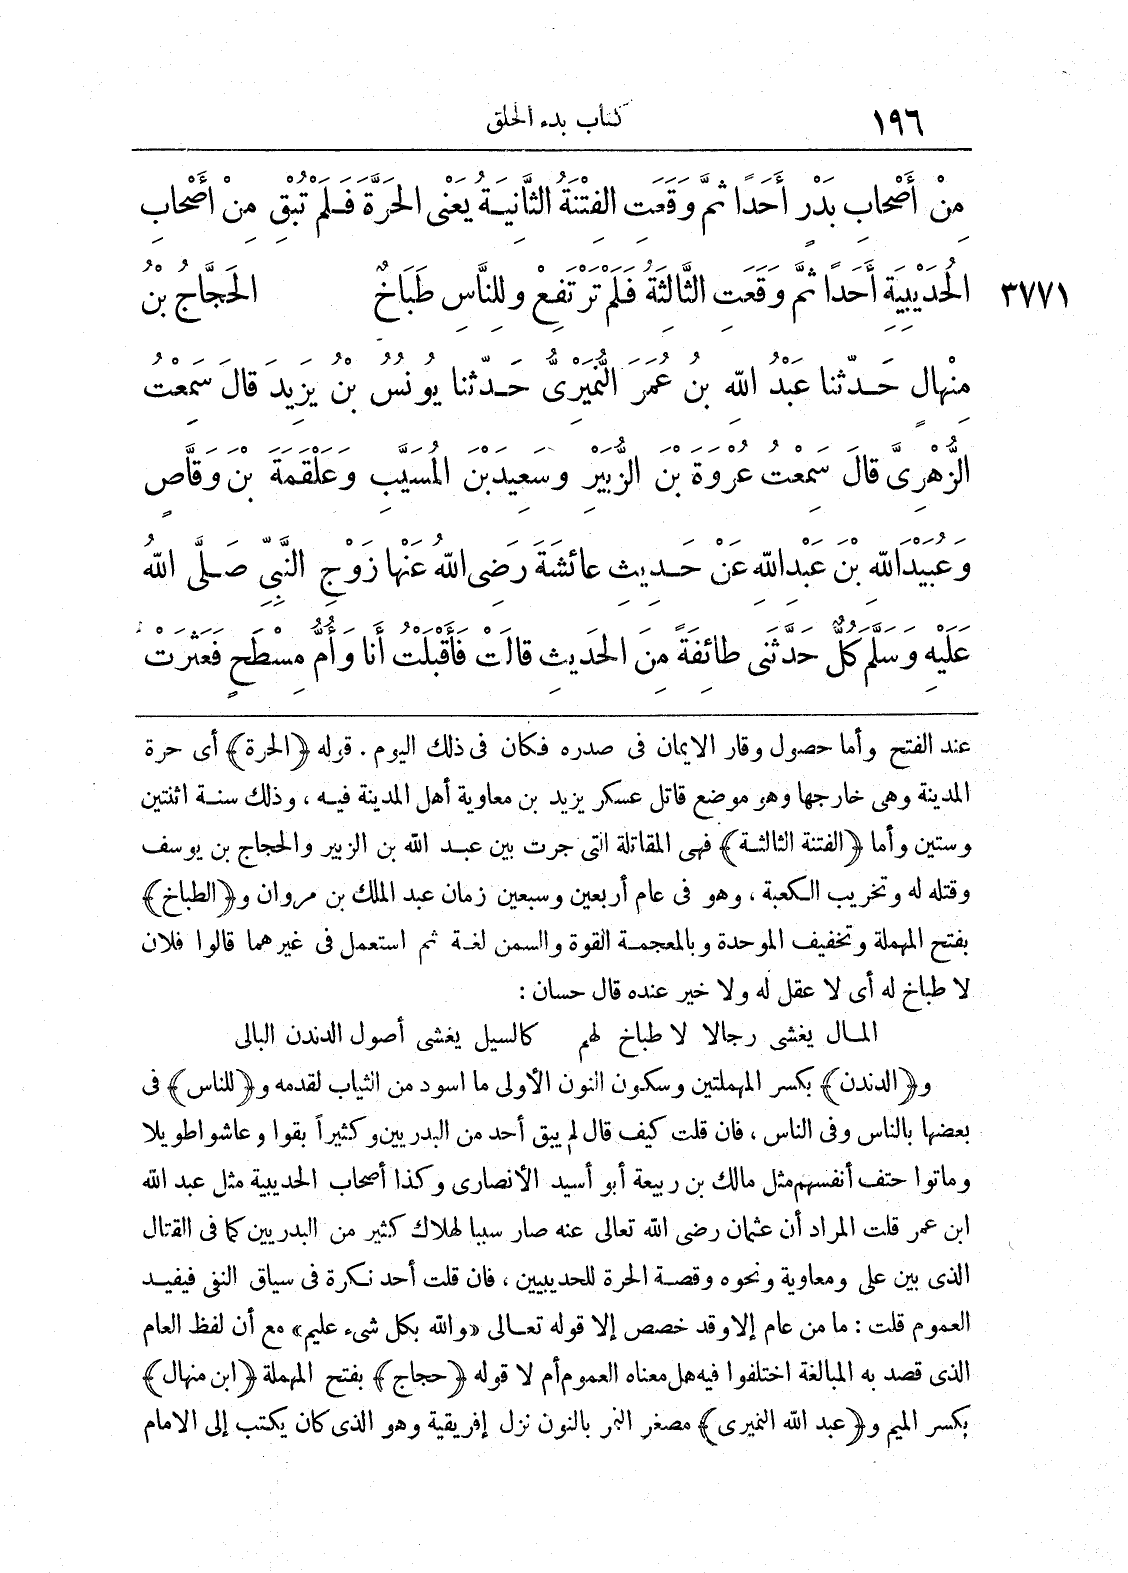 ١٩٦ كتاب بدء الخلق
مِنْ أَصْحَابِ بَدْرٍ أَحَدًا ثُمَّ وَقَعَتِ الفِتْنَةُ الثَّانِيَةُ يَعْنِى الحَرَّةَ فَلَمْ تُبْقِ مِنْ أَصْحَابِ
٣٧٧١ الحُدَيْبِيَةِ أَحَدًا ثُمَّ وَقَعَتِ الثَّالِثَةُ فَلَمْ تَرْتَفِعْ وللنَّاسِ طَبَاخٌ الحَجَّاجُ بْنُ
مِنْهالٍ حَدّثنا عَبْدُ اللهِ بنُ عُمَرَ النُّمَيْرِىُّ حَدّثنا يُونُسُ بْنُ يَزِيدَ قالَ سَمِعْتُ
الزُّهْرِىَّ قالَ سَمِعْتُ عُرْوَةَ بْنَ الزُّبَيْرِ وسَعِيدَ بْنَ المُسَيَّبِ وعَلْقَمَةَ بْنَ وَقَّاصٍ
وعُبَيْدَ اللهِ بْنَ عَبْدِ اللهِ عَنْ حَدِيثِ عائشَةَ رَضِىَ اللهُ عَنْها زَوْجِ النَّبِىِّ صَلَّى اللهُ
عَلَيْهِ وسَلَّمَ كُلٌّ حَدَّثَنِى طائِفَةً مِنَ الحَدِيثِ قالَتْ فَأَقْبَلْتُ أَنا وأُمُّ مِسْطَحٍ فَعَثَرَتْ
عند الفتح وأما حصول وقار الايمان فى صدره فكان فى ذلك اليوم . قوله ﴿الحرة﴾ أى حرة
المدينة وهى خارجها وهو موضع قاتل عسكر يزيد بن معاوية أهل المدينة فيه ، وذلك سنة اثنتين
وستين وأما ﴿الفتنة الثالثة﴾ فهى المقاتلة التى جرت بين عبد الله بن الزبير والحجاج بن يوسف
وقتله له وتخريب الكعبة ، وهو فى عام أربعين وسبعين زمان عبد الملك بن مروان و﴿الطباخ﴾
بفتح المهملة وتخفيف الموحدة وبالمعجمة القوة والسمن لغة ثم استعمل فى غيرهما قالوا فلان
لا طباخ له أى لا عقل له ولا خير عنده قال حسان :
المال يغشى رجالا لا طباخ لهم كالسيل يغشى أصول الدندن البالى
و﴿الدندن﴾ بكسر المهملتين وسكون النون الأولى ما اسود من الثياب لقدمه و﴿للناس﴾ فى
بعضها بالناس وفى الناس ، فان قلت كيف قال لم يبق أحد من البدريين وكثيراً بقوا وعاشوا طويلا
وماتوا حتف أنفسهم مثل مالك بن ربيعة أبو أسيد الأنصارى وكذا أصحاب الحديبية مثل عبد الله
ابن عمر قلت المراد أن عثمان رضى الله تعالى عنه صار سببا لهلاك كثير من البدريين كما فى القتال
الذى بين على ومعاوية ونحوه وقصة الحرة للحديبيين ، فان قلت أحد نكرة فى سياق النفى فيفيد
العموم قلت : ما من عام إلا وقد خصص إلا قوله تعالى «والله بكل شىء عليم» مع أن لفظ العام
الذى قصد به المبالغة اختلفوا فيه هل معناه العموم أم لا قوله ﴿حجاج﴾ بفتح المهملة ﴿ابن منهال﴾
بكسر الميم و﴿عبد الله النميرى﴾ مصغر النمر بالنون نزل إفريقية وهو الذى كان يكتب إلى الامام